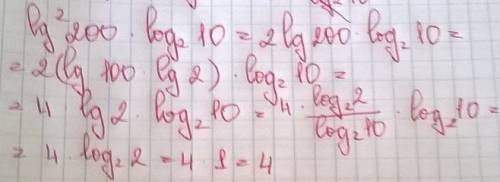 lg² 200 · log₂ 10 = 2 lg 200 · log₂ 10 =
= 2(lg 100 · lg 2) · log₂ 10 =
= 4 · lg 2 · log₂ 10 = 4 · log₂ 2 / log₂ 10 · log₂ 10 =
= 4 · log₂ 2 = 4 · 1 = 4